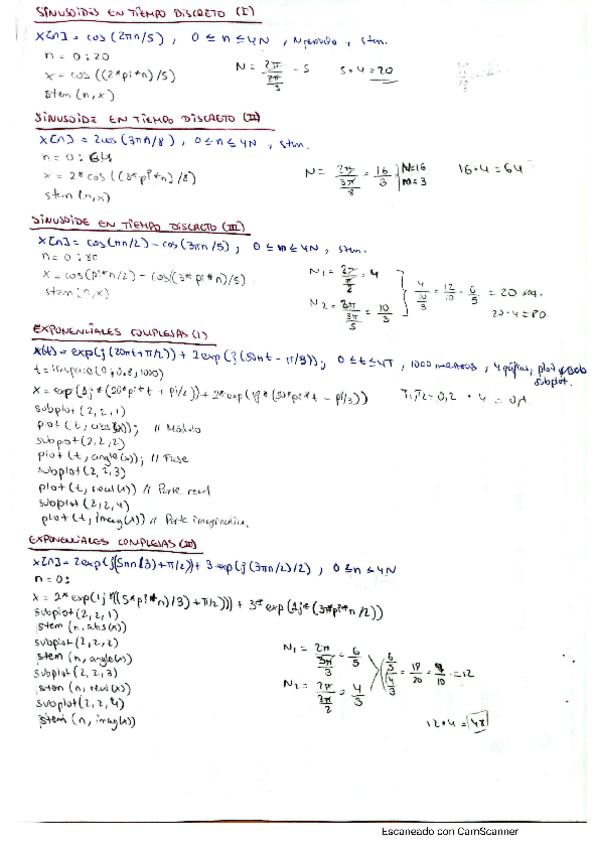 SINUSOIDES EN TIEMPO DISCRETO (I)
x[n] = cos(2πn/5), 0 ≤ n ≤ 4N, N periodo, stem.
n = 0:20
x = cos((2*pi*n)/5)
stem(n,x)
N = 2π / (2π/5) = 5   5·4 = 20
SINUSOIDE EN TIEMPO DISCRETO (II)
x[n] = 2cos(3πn/8), 0 ≤ n ≤ 4N, stem.
n = 0:64
x = 2*cos((3*pi*n)/8)
stem(n,x)
N = 2π / (3π/8) = 16/3 } N=16 m=3   16·4 = 64
SINUSOIDE EN TIEMPO DISCRETO (III)
x[n] = cos(πn/2) - cos(3πn/5), 0 ≤ n ≤ 4N, stem.
n = 0:80
x = cos(pi*n/2) - cos((3*pi*n)/5)
stem(n,x)
N1 = 2π / (π/2) = 4
N2 = 2π / (3π/5) = 10/3
4 / (10/3) = 12/10 = 6/5 = 20
20·4 = 80
EXPONENCIALES COMPLEJAS (I)
x(t) = exp(j(20πt+π/2)) + 2exp(j(50πt-π/3)); 0 ≤ t ≤ 4T, 1000 muestras, 4 gráficas, plot subplot.
t = linspace(0, 0.8, 1000)
x = exp(1j*(20*pi*t + pi/2)) + 2*exp(1j*(50*pi*t - pi/3))
T = 0,2 · 4 = 0,8
subplot(2,2,1)
plot(t, abs(x)); // Módulo
subpot(2,2,2)
plot(t, angle(x)); // Fase
subplot(2,2,3)
plot(t, real(x)) // Parte real
subplot(2,2,4)
plot(t, imag(x)) // Parte imaginaria.
EXPONENCIALES COMPLEJAS (II)
x[n] = 2exp(j(5πn/3)+π/2)) + 3exp(j(3πn)/2), 0 ≤ n ≤ 4N
n = 0:
x = 2*exp(1j*((5*pi*n)/3)+π/2))) + 3*exp(1j*(3*pi*n/2))
subplot(2,2,1)
stem(n,abs(x))
subplot(2,2,2)
stem(n,angle(x))
subplot(2,2,3)
stem(n,real(x))
subplot(2,2,4)
stem(n,imag(x))
N1 = 2π / (5π/3) = 6/5
N2 = 2π / (3π/2) = 4/3
(6/5) / (4/3) = 18/20 = 9/10 = 12
12·4 = 48
Escaneado con CamScanner